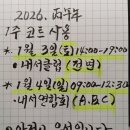 2026. 丙午年
1주 코트 사용
* 1월 3일(토) 14:00-19:00
• 내서클럽 (전면)
* 1월 4일(일) 09:00-12:30
• 내서연합회 (A.B.C)